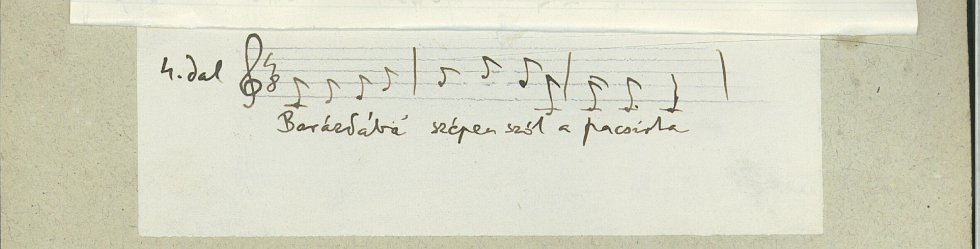 4. dal 4 8
Barázdábá szépen szól a pacsirta